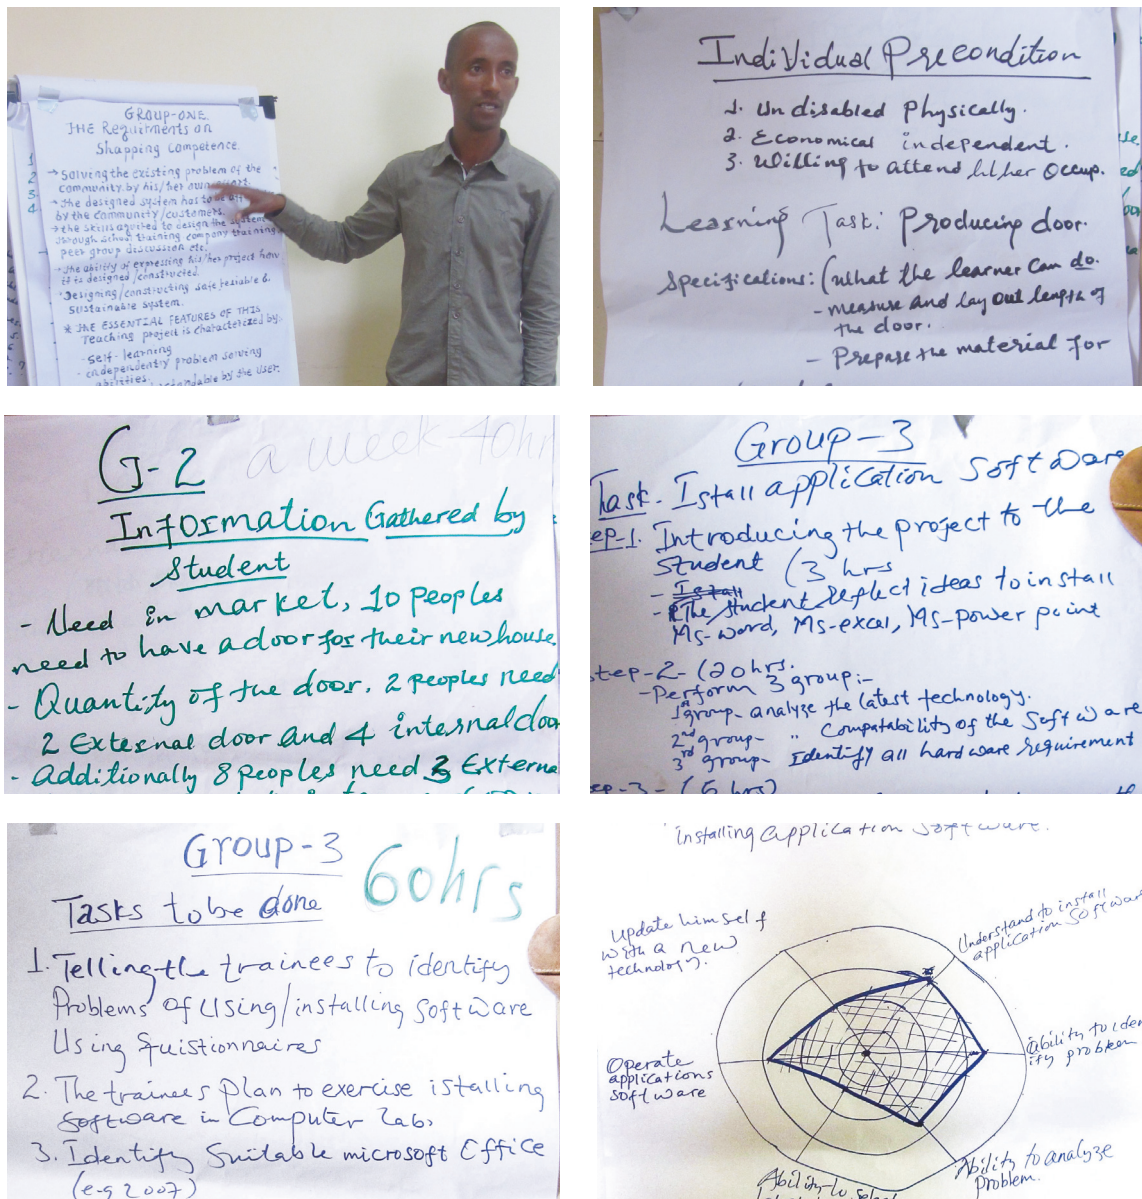 GROUP-ONE.
THE Requirments on
Shapping Competence.
→ Solving the existing problem of the
community by his/her own effort.
→ The designed system has to be
by the community/customers.
→ the skills aquired to design the system
through school training company training
peer group discussion etc.
→ The ability of expressing his/her project how
it is designed/constructed.
Designing/constructing safe reliable &
sustainable system.
* THE ESSENTIAL FEATURES OF THIS
Teaching project is characterized by:
- self-learning
- independently problem solving
abilities.
by the USER.
1
2
3
4
Individual Precondition
1. Undisabled physically.
2. Economical independent.
3. Willing to attend hi/her occup.
Learning Task: Producing door.
Specifications: (What the learner can do.
- measure and lay out length of
the door.
- Prepare the material for
G-2
a week 40hr
Information Gathered by
Student
- Need in market, 10 peoples
need to have a door for their new house.
- Quantity of the door. 2 peoples need
2 External door and 4 internal doo
- additionally 8 peoples need 3 Externa
Group-3
Task. Istall application software
ep-1. Introducing the project to the
student (3 hrs
- Install
- The student reflect ideas to install
Ms-word, Ms-excel, Ms-power point
step-2- (20hrs.
- Perform 3 group:-
1st group- analyze the latest technology.
2nd group- " Compatability of the software
3rd group- Identify all hardware requirement
ep-3- (6 hrs)
Group-3
60hrs
Tasks to be done
1. Telling the trainees to identify
Problems of using/installing software
Using quistionnaires
2. The trainees plan to exercise istalling
software in Computer lab.
3. Identify Suitable microsoft Office
(e.g 2007)
installing application software.
Update himself
with a new
technology.
Understand to install
application software
Operate
applications
software
ability to iden
ify problem
Ability to analyze
problem.
Ability to select